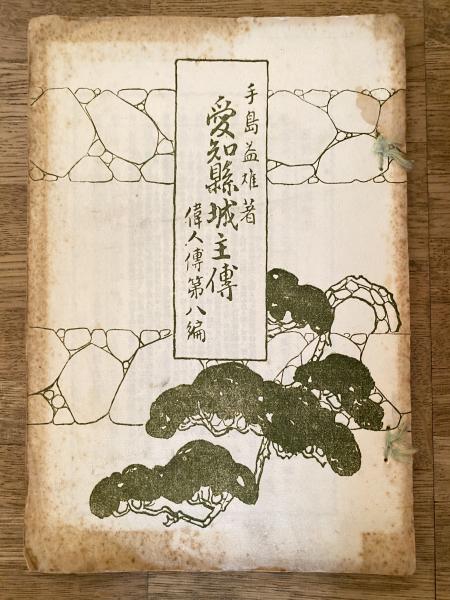 手島益雄著
愛知縣城主傳
偉人傳第八編